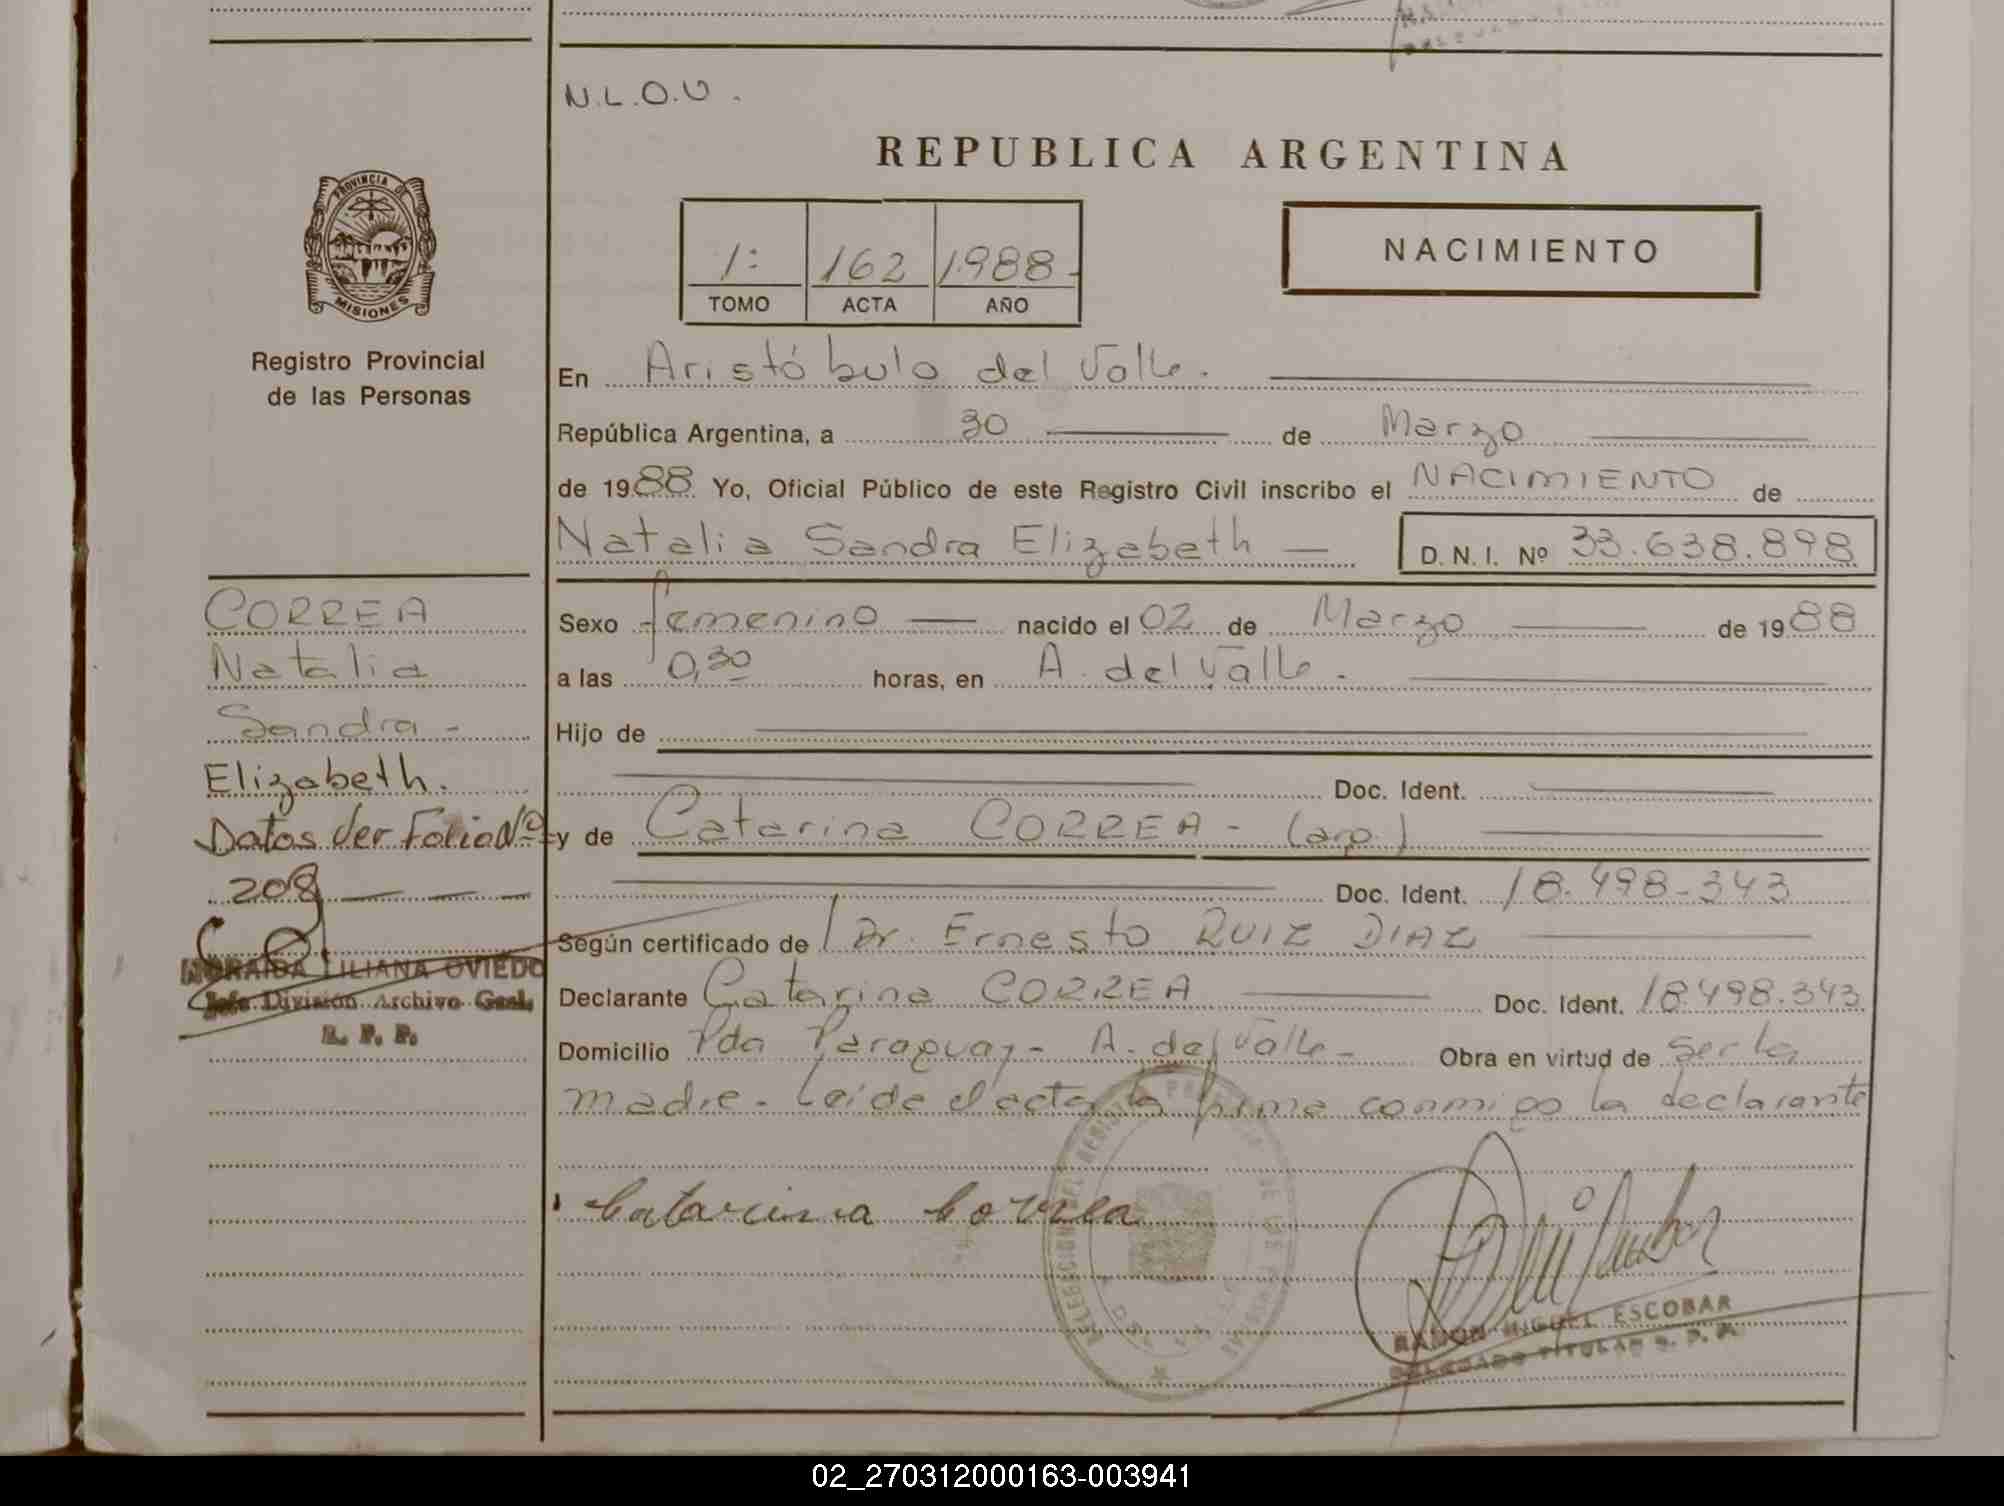 N.L.O.U.
REPUBLICA ARGENTINA
PROVINCIA DE
MISIONES
Registro Provincial
de las Personas
1: 162 1988-
TOMO ACTA AÑO
NACIMIENTO
En Aristóbulo del Valle.
República Argentina, a 30 de Marzo
de 1988 Yo, Oficial Público de este Registro Civil inscribo el NACIMIENTO de
Natalia Sandra Elizabeth D. N. I. Nº 33.638.898
CORREA
Natalia
Sandra -
Elizabeth.
Datos Ver Folio Nº
208
NORAIDA LILIANA OVIEDO
Jefe División Archivo Gral.
R. P. P.
Sexo femenino nacido el 02 de Marzo de 1988
a las 0,30 horas, en A. del Valle.
Hijo de
Doc. Ident.
y de Catarina CORREA - (arg.)
Doc. Ident. 18.498-343
Según certificado de Dr. Ernesto RUIZ DIAZ
Declarante Catarina CORREA Doc. Ident. 18.498.343
Domicilio Pda Paraguay - A. del Valle - Obra en virtud de ser la
madre - Leída el acta la firma conmigo la declarante
Catarina Correa
RAMON MIGUEL ESCOBAR
DELEGADO TITULAR R. P. P.
02_270312000163-003941